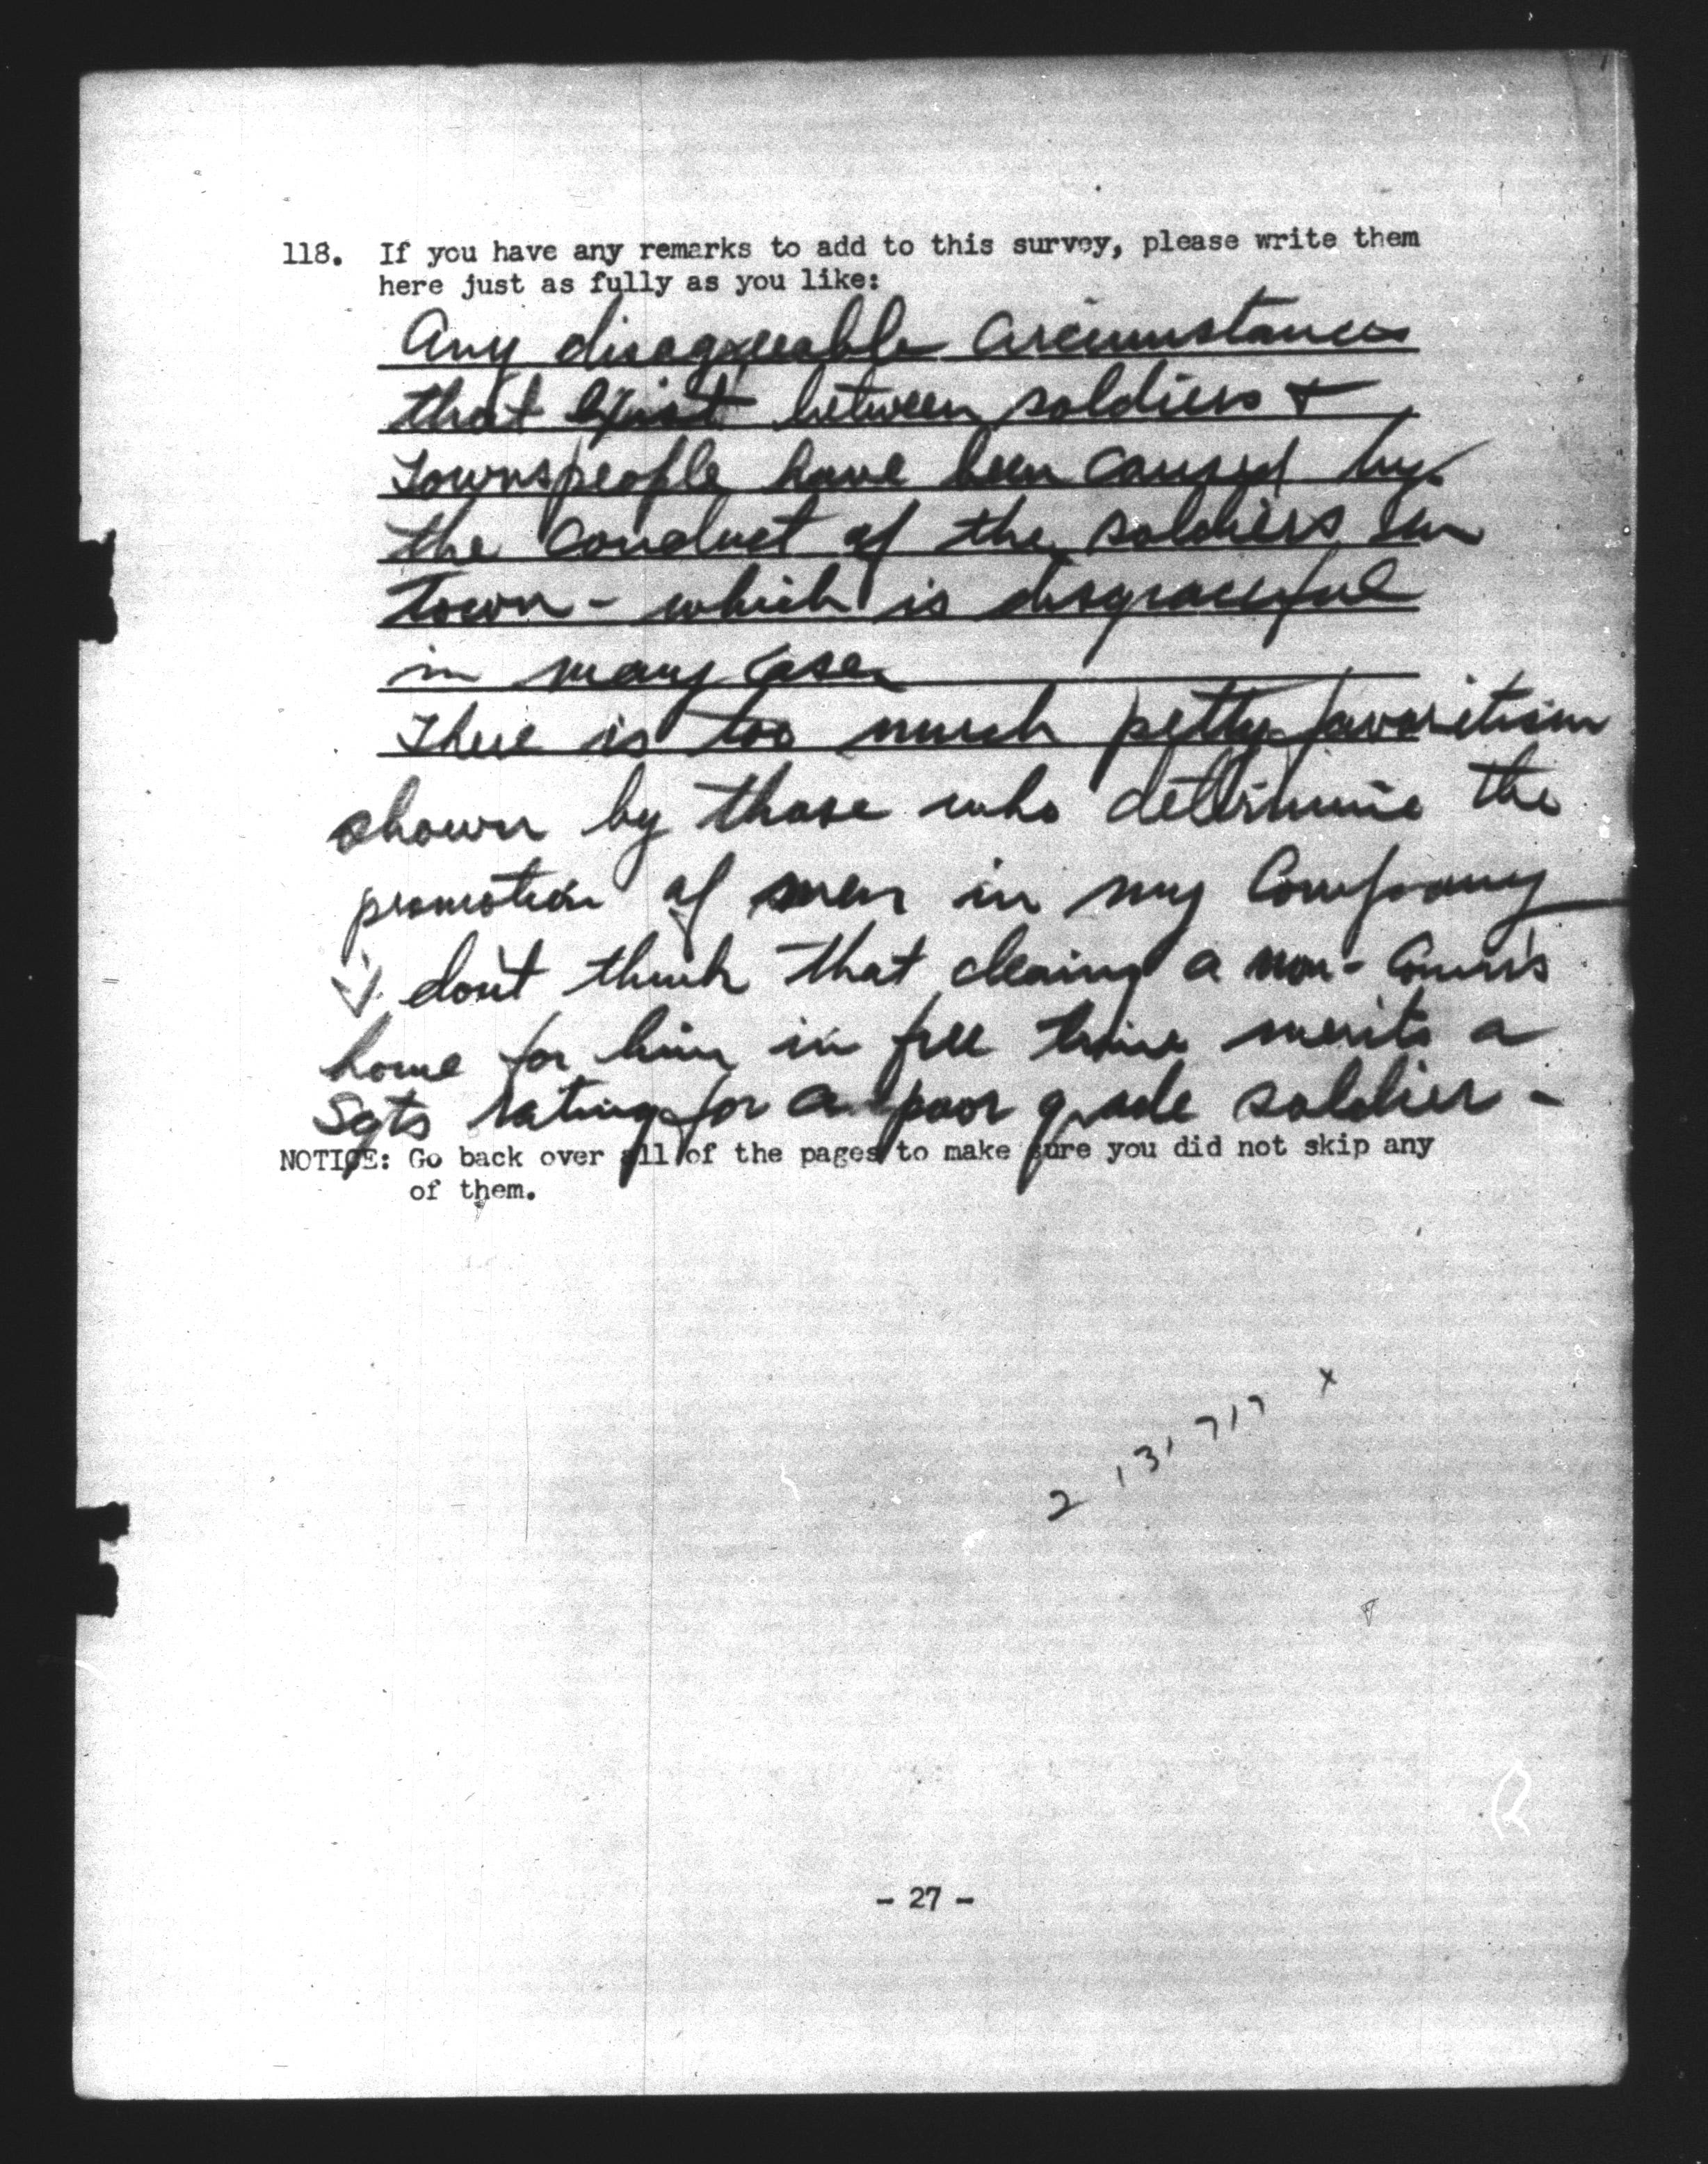 118. If you have any remarks to add to this survey, please write them
here just as fully as you like:
Any disagreeable circumstances
that exist between soldiers +
townspeople have been caused by
the conduct of the soldiers in
town - which is disgraceful
in many cases
There is too much petty favoritism
shown by those who determine the
promotion of men in my Company
I don't think that cleaning a non-Comm's
home for him in free time merits a
Sgts rating for a poor grade soldier -
NOTICE: Go back over all of the pages to make sure you did not skip any
of them.
2 131717 x
- 27 -